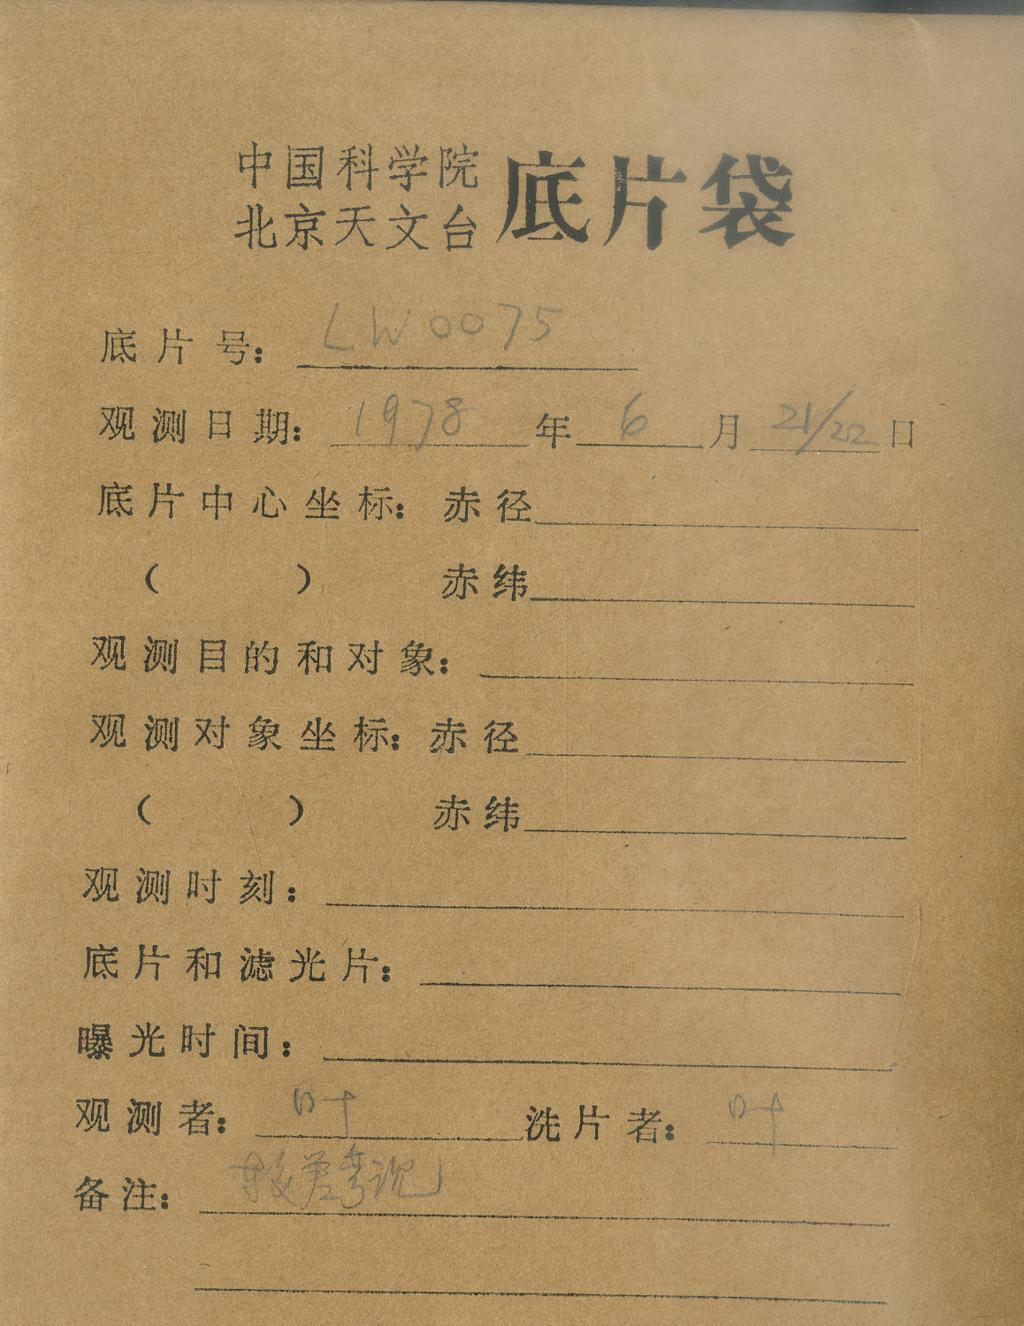 中国科学院
北京天文台 底片袋
底片号: LW0075
观测日期: 1978 年 6 月 21/22 日
底片中心坐标: 赤径
( ) 赤纬
观测目的和对象:
观测对象坐标: 赤径
( ) 赤纬
观测时刻:
底片和滤光片:
曝光时间:
观测者: 叶 洗片者: 叶
备注: